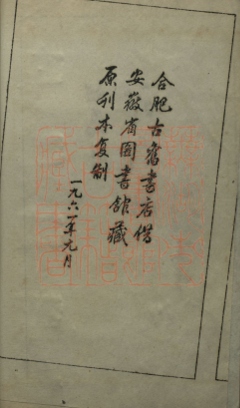 合肥古舊書店借
安徽省圖書館藏
原刊本复制
一九六一年九月